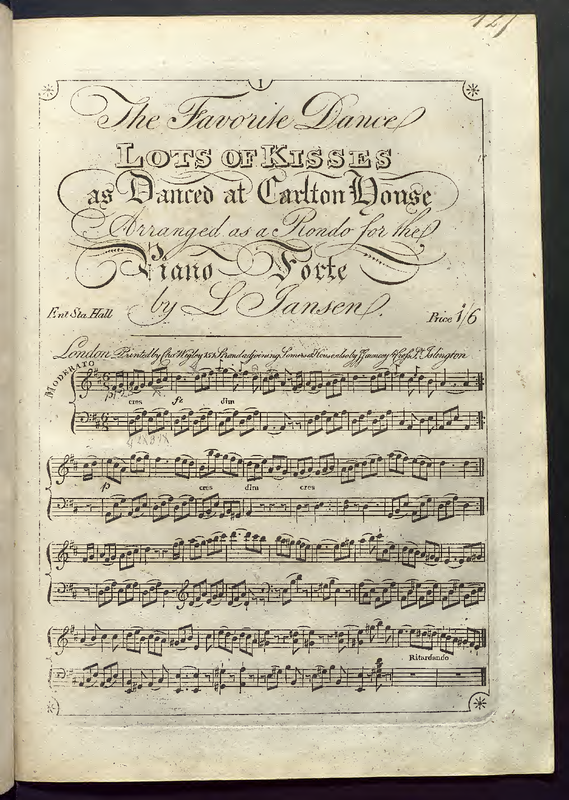 127
1
The Favorite Dance
LOTS OF KISSES
as Danced at Carlton House
Arranged as a Rondo for the
Piano Forte
by L Jansen.
Ent Sta. Hall
Price 1/6
London Printed by Chas Wigley Strand adjoining Somerset House, also by Islington
MODERATO
p
cres fz dim
p cres dim cres
Ritardando